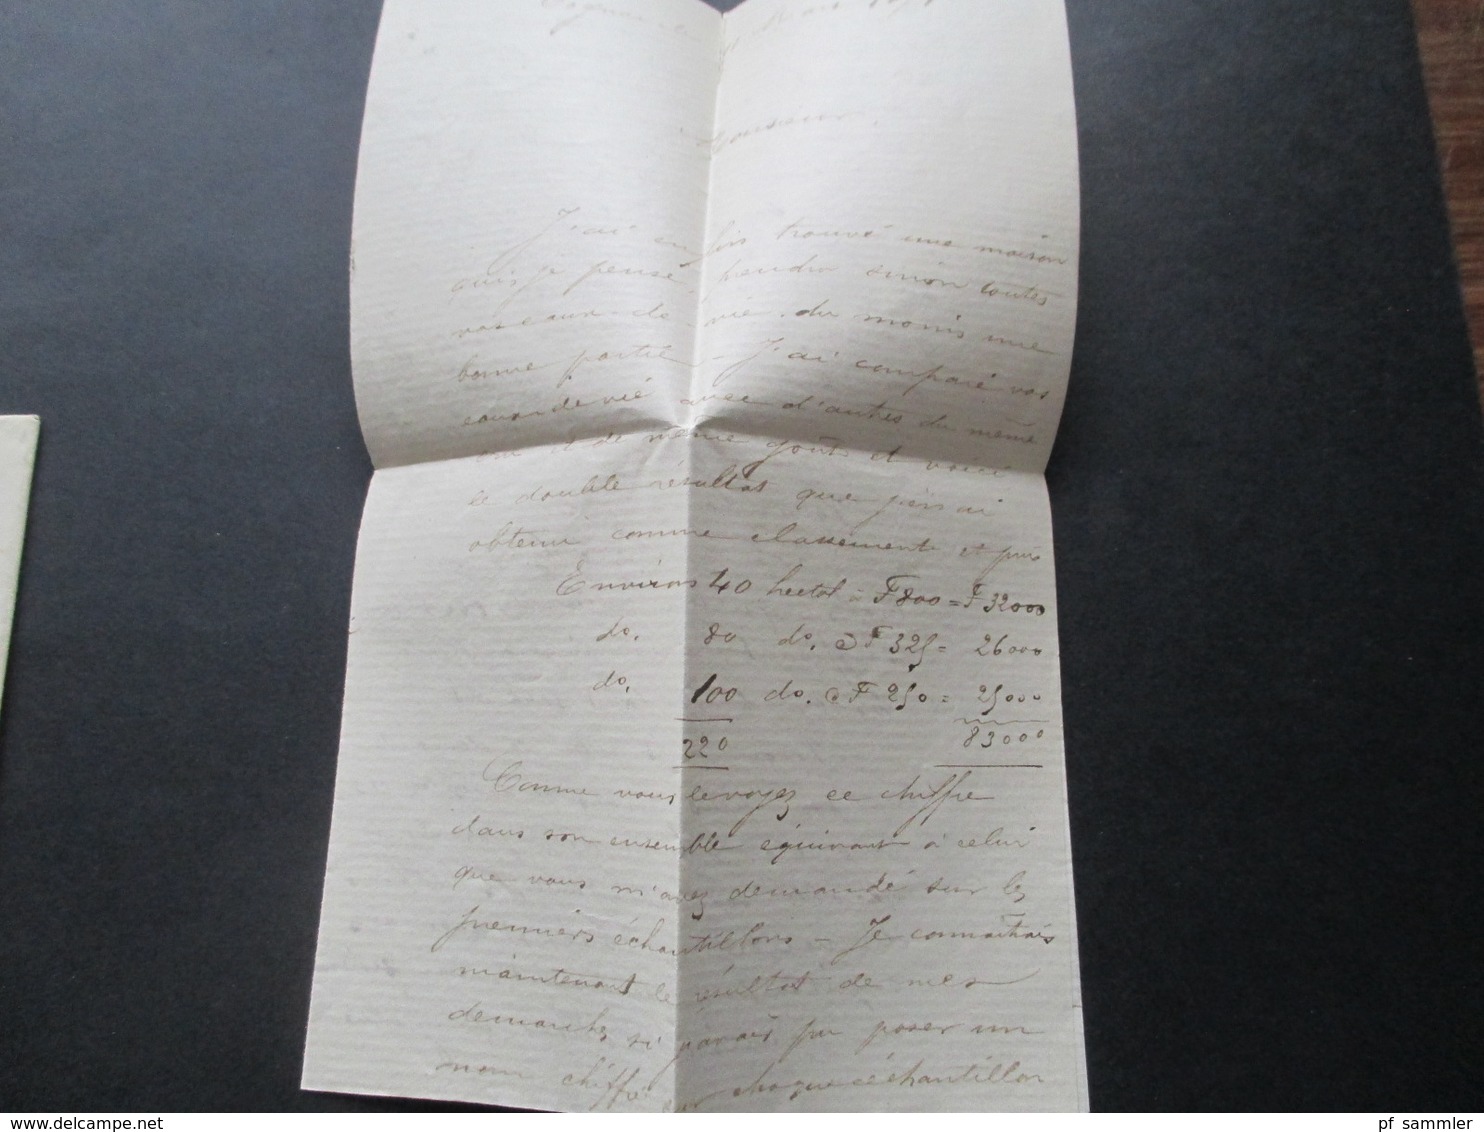 Cognac le Mars
Monsieur,
J'ai enfin trouvé une maison
qui je pense prendra sinon toutes
vos eaux-de-vie, du moins une
bonne partie – J'ai comparé vos
eaux de vie avec d'autres du même
cru et de même goûts et voici
le double résultat que j'en ai
obtenu comme classement et prix
Environs 40 hectol à F 800 = F 32000
do. 80 do. @ F 325 = 26000
do. 100 do. @ F 250 = 25000
220 83000
Comme vous le voyez ce chiffre
dans son ensemble équivaut à celui
que vous m'avez demandé sur les
premiers échantillons – Je connaîtrais
maintenant le résultat de mes
démarches si j'avais pu poser un
nom chiffre sur chaque échantillon
pf_sammler